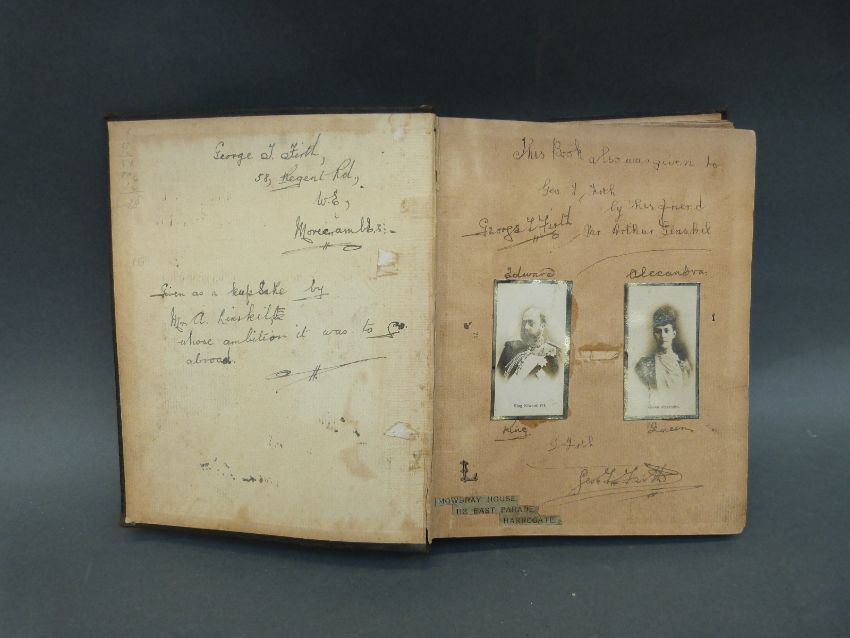 George T. Firth,
58, Regent Rd.,
W.E.,
Morecambe:-
Given as a kup Sake by
Mr A. Linskill
whose ambition it was to go
abroad.
This Book also was given to
Geo T. Firth
by his friend
George T Firth
Mr Arthur Linskill
Edward
Alexandra
King Edward VII.
King
Queen
G Firth
Geo T. Firth
L
MOWBRAY HOUSE
112 EAST PARADE
HARROGATE.